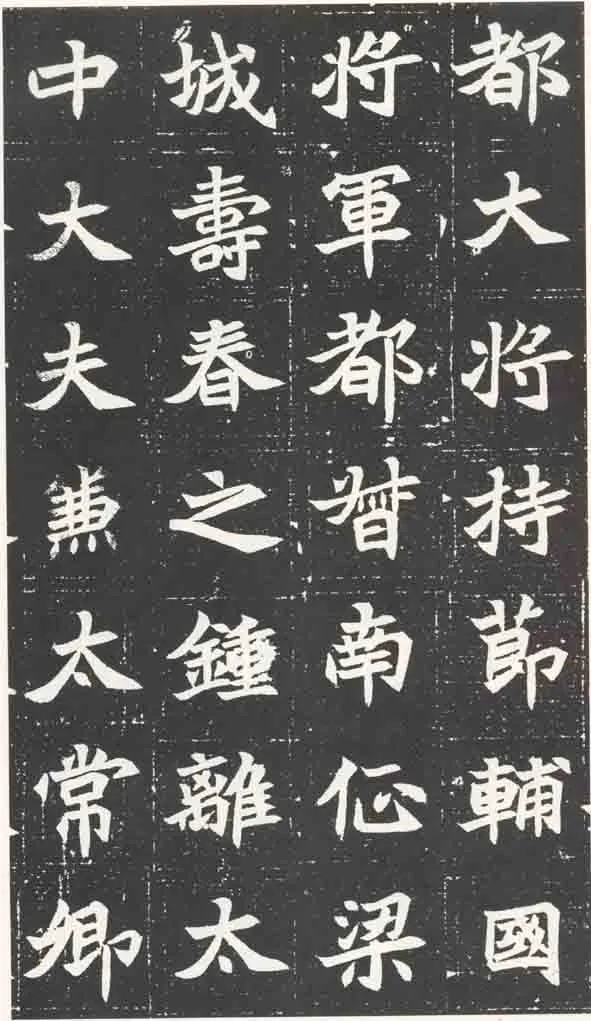 都大将持莭輔國
将軍都督南佂梁
城壽春之鍾離太
中大夫兼太常卿